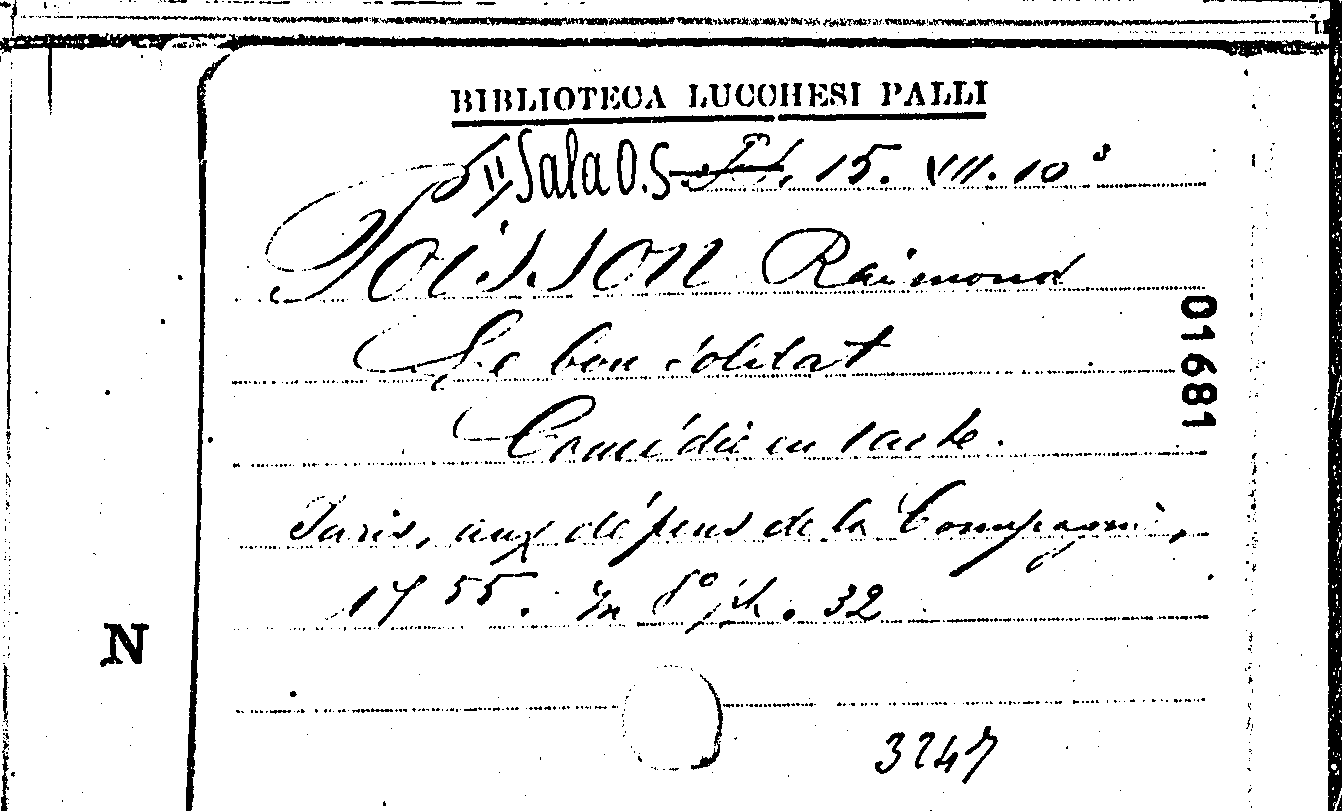 BIBLIOTECA LUCCHESI PALLI
II Sala O.S. 15. VII. 10³
POISSON Raimond
Le bon soldat
Comédie en 1 acte.
Paris, aux dépens de la Compagnie,
1755. In 8° 32
3247
01681
N